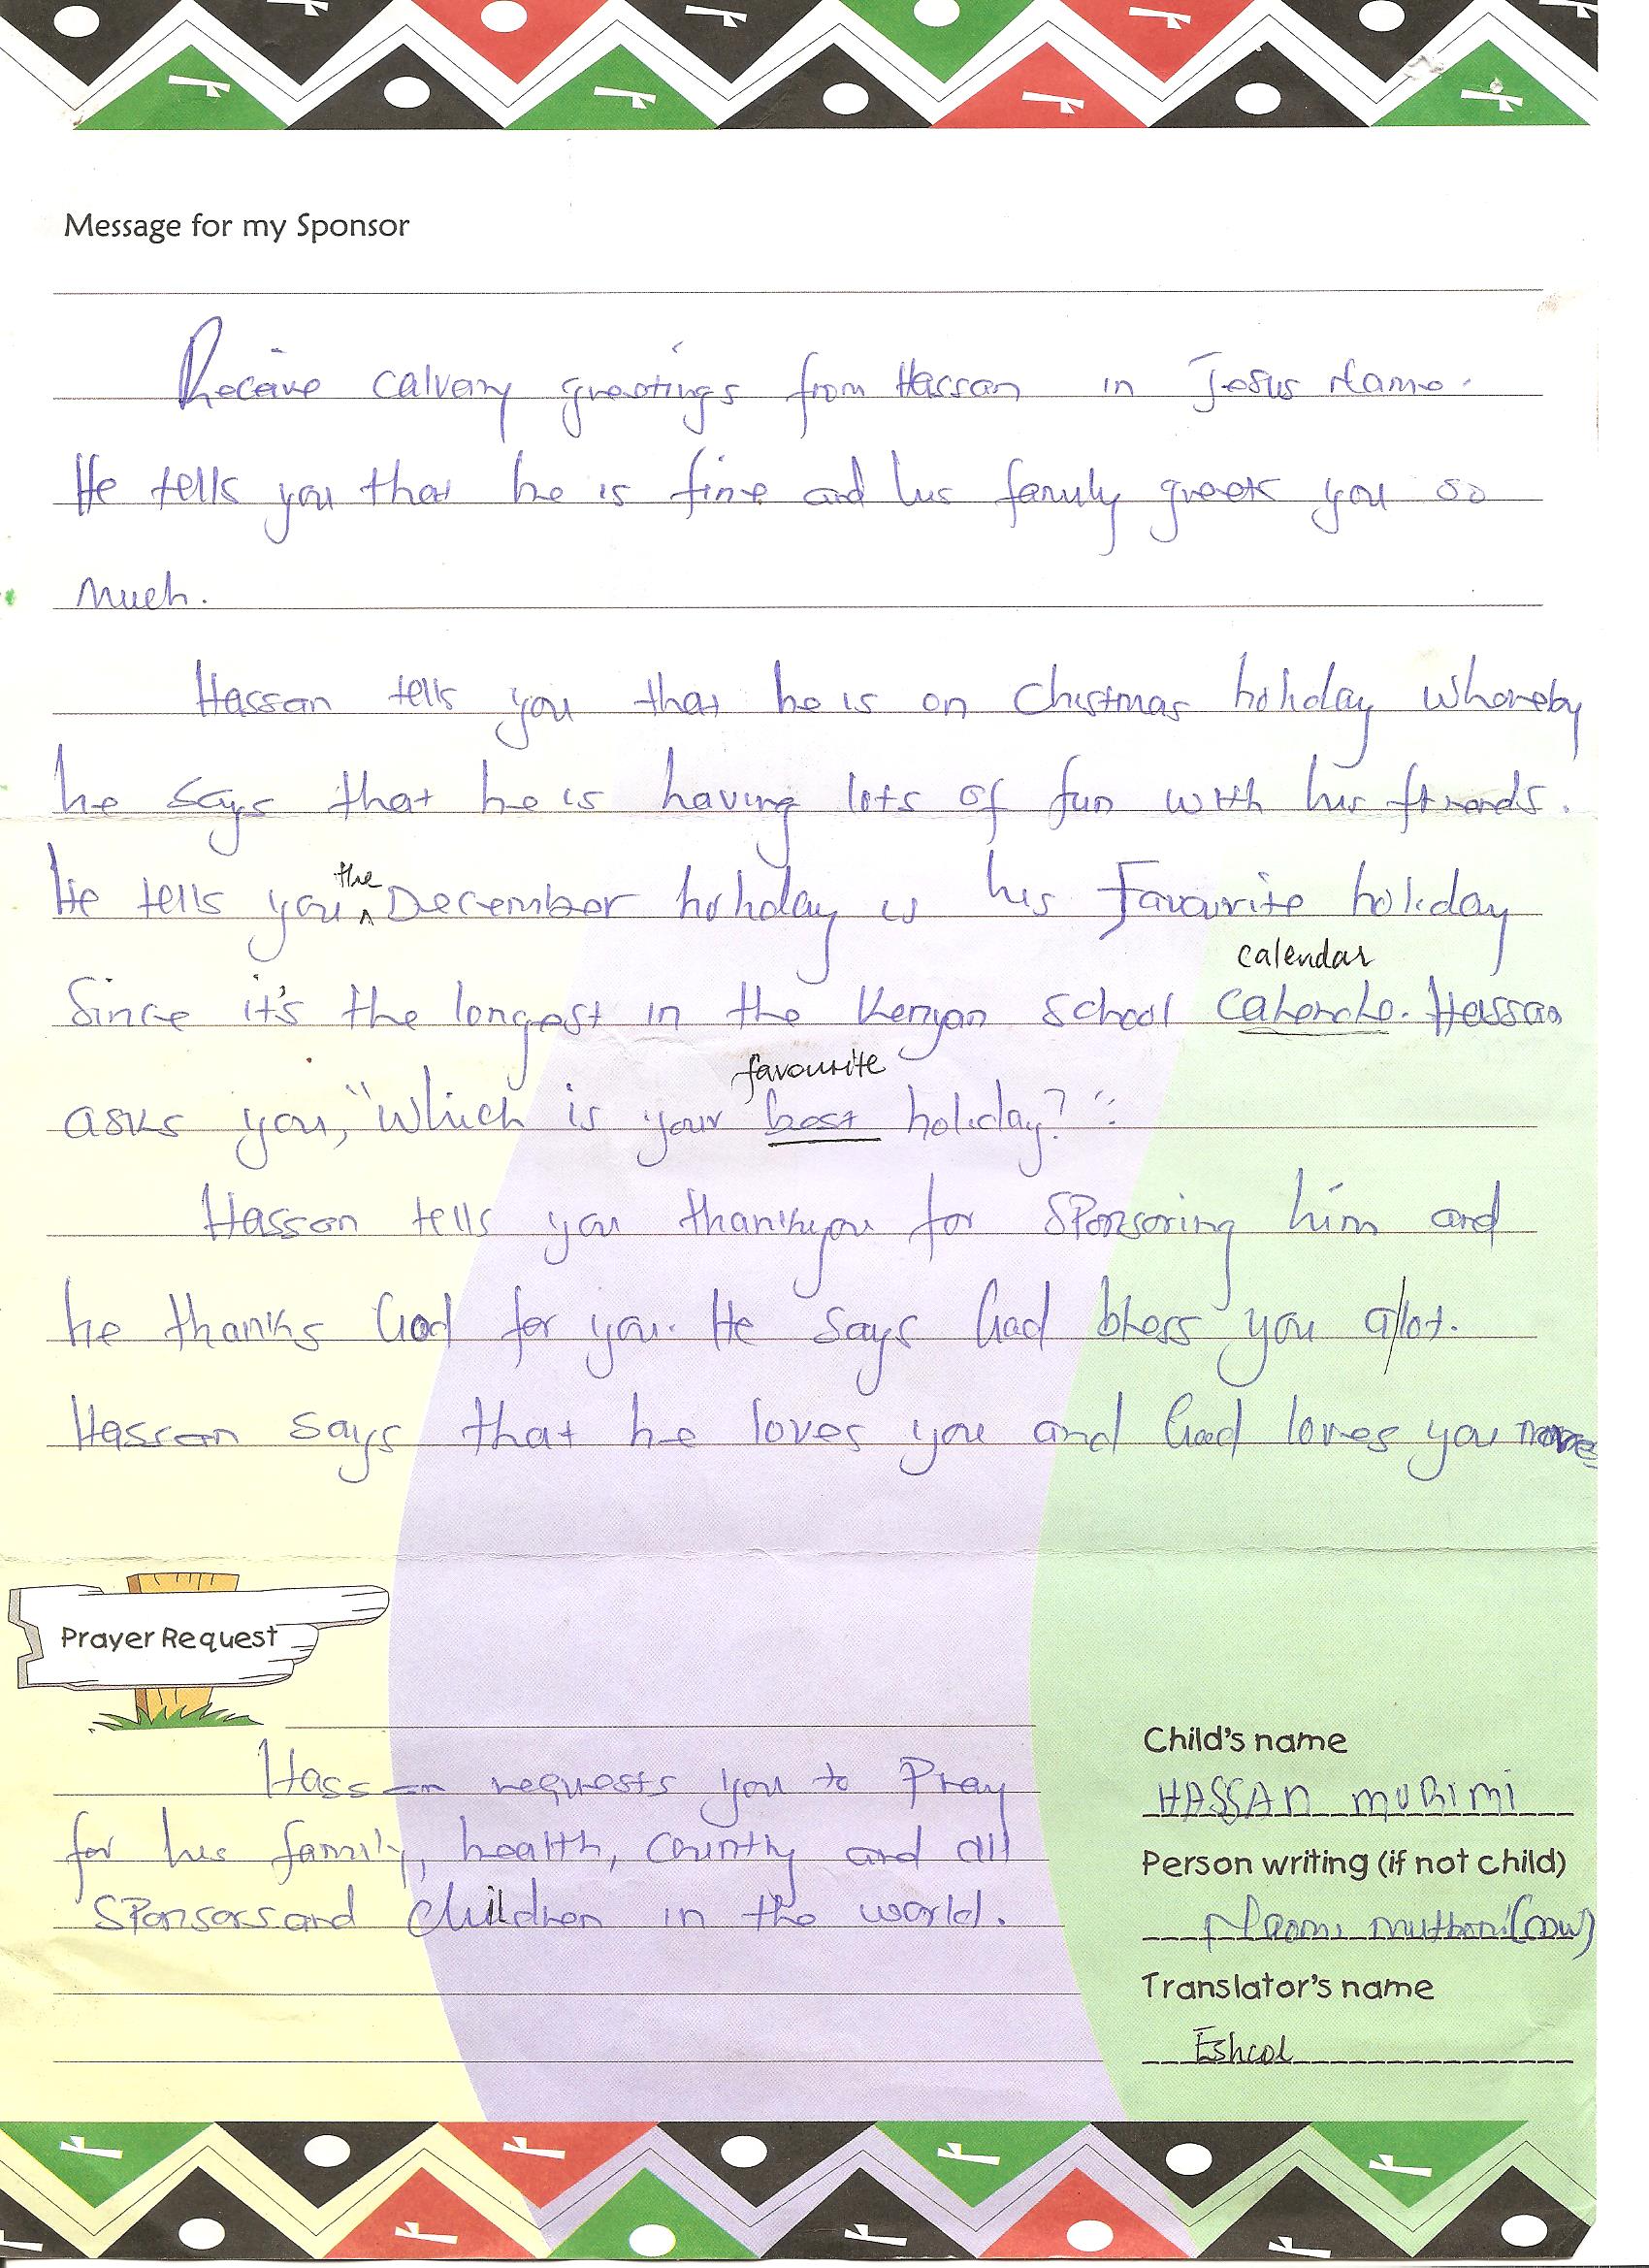 Message for my Sponsor
Receive calvary greetings from Hassan in Jesus Name.
He tells you that he is fine and his family greets you so
much.
Hassan tells you that he is on Chistmas holiday whereby
he says that he is having lots of fun with his friends.
the
He tells you ^ December holiday is his Favourite holiday
calendar
Since it's the longest in the Kenyan school calende. Hassan
favourite
asks you, "Which is your best holiday?"
Hassan tells you thankyou for sponsoring him and
he thanks God for you. He says God bless you a/lot.
Hassan says that he loves you and God loves you more
Prayer Request
Hassan requests you to Pray
for his family, health, country and all
Sponsors and children in the world.
Child's name
HASSAN MURIMI
Person writing (if not child)
Naomi Muthoni (CDW)
Translator's name
Eshcol